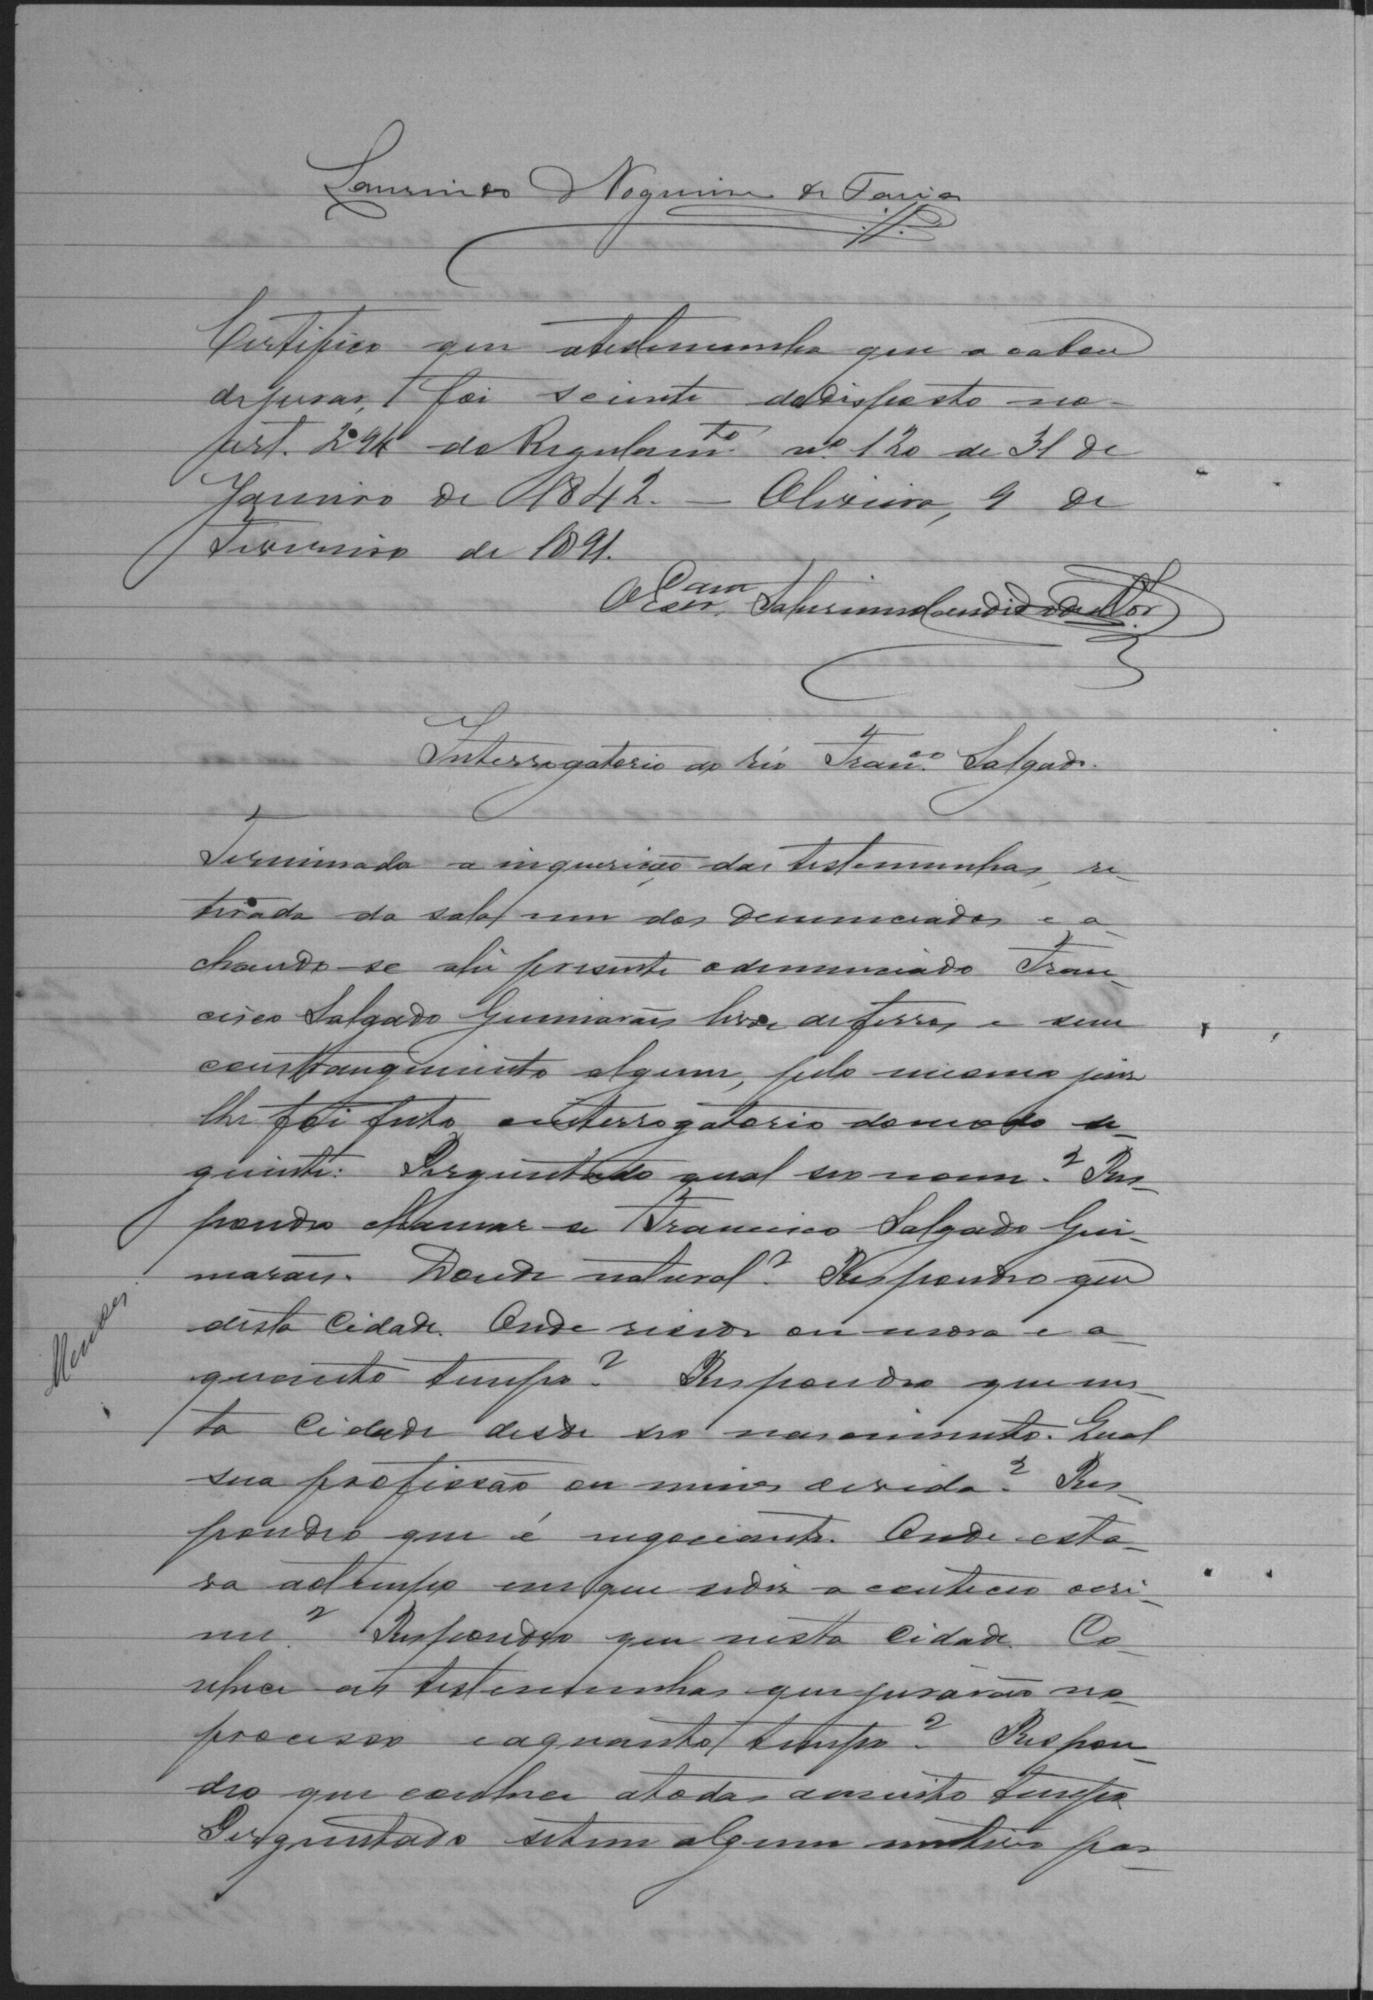 Laurindo Nogueira de Faria
Certifico que atestemunha que a cabou
de jurar, foi sciente dodisposto no
art. 294 do Regulamto. nº 120 de 31 de
Janeiro de 1842. — Oliveira, 9 de
Fevereiro de 1891.
O Escr.
Interrogatorio ao réo Franco. Salgado.
Terminada a inquerição das testemunhas, re-
tirada da sala um dos denunciados e a-
chando-se ahi presente odenunciado Fran-
cisco Salgado Guimarães livre deferros e sem
constrangimento algum, pelo mesmo juiz
lhe foi feito ointerrogatorio domodo se-
guinte: Perguntado qual seo nome? Res-
pondeo chamar se Francisco Salgado Gui-
marães. Donde natural? Respondeo que
desta Cidade. Onde reside ou mora e a
quanto tempo? Respondeo que nes-
ta Cidade desde seo nascimento. Qual
sua profissão ou meios devida? Res-
pondeo que é negociante. Onde esta-
va aotempo em que sediz aconteceo ocri-
me? Respondeo que nesta Cidade. Co-
nhece as testemunhas que jurarão no
processo eaquanto tempo? Respon-
deo que conhece atodas amuito tempo
Perguntado setem algum motivo par-
Mendes